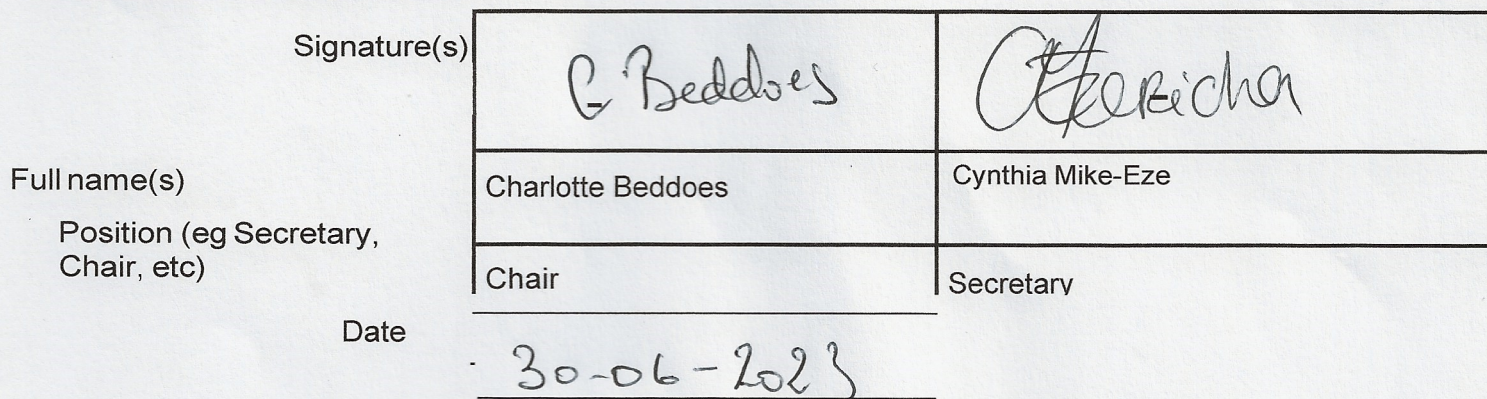 Signature(s)
C Beddoes
Full name(s)
Charlotte Beddoes
Cynthia Mike-Eze
Position (eg Secretary,
Chair, etc)
Chair
Secretary
Date
30-06-2023